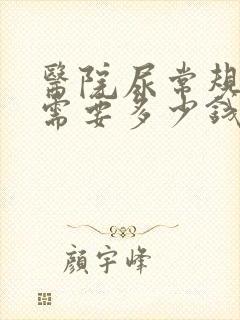 醫院尿常規
需要多少錢
顏宇峰